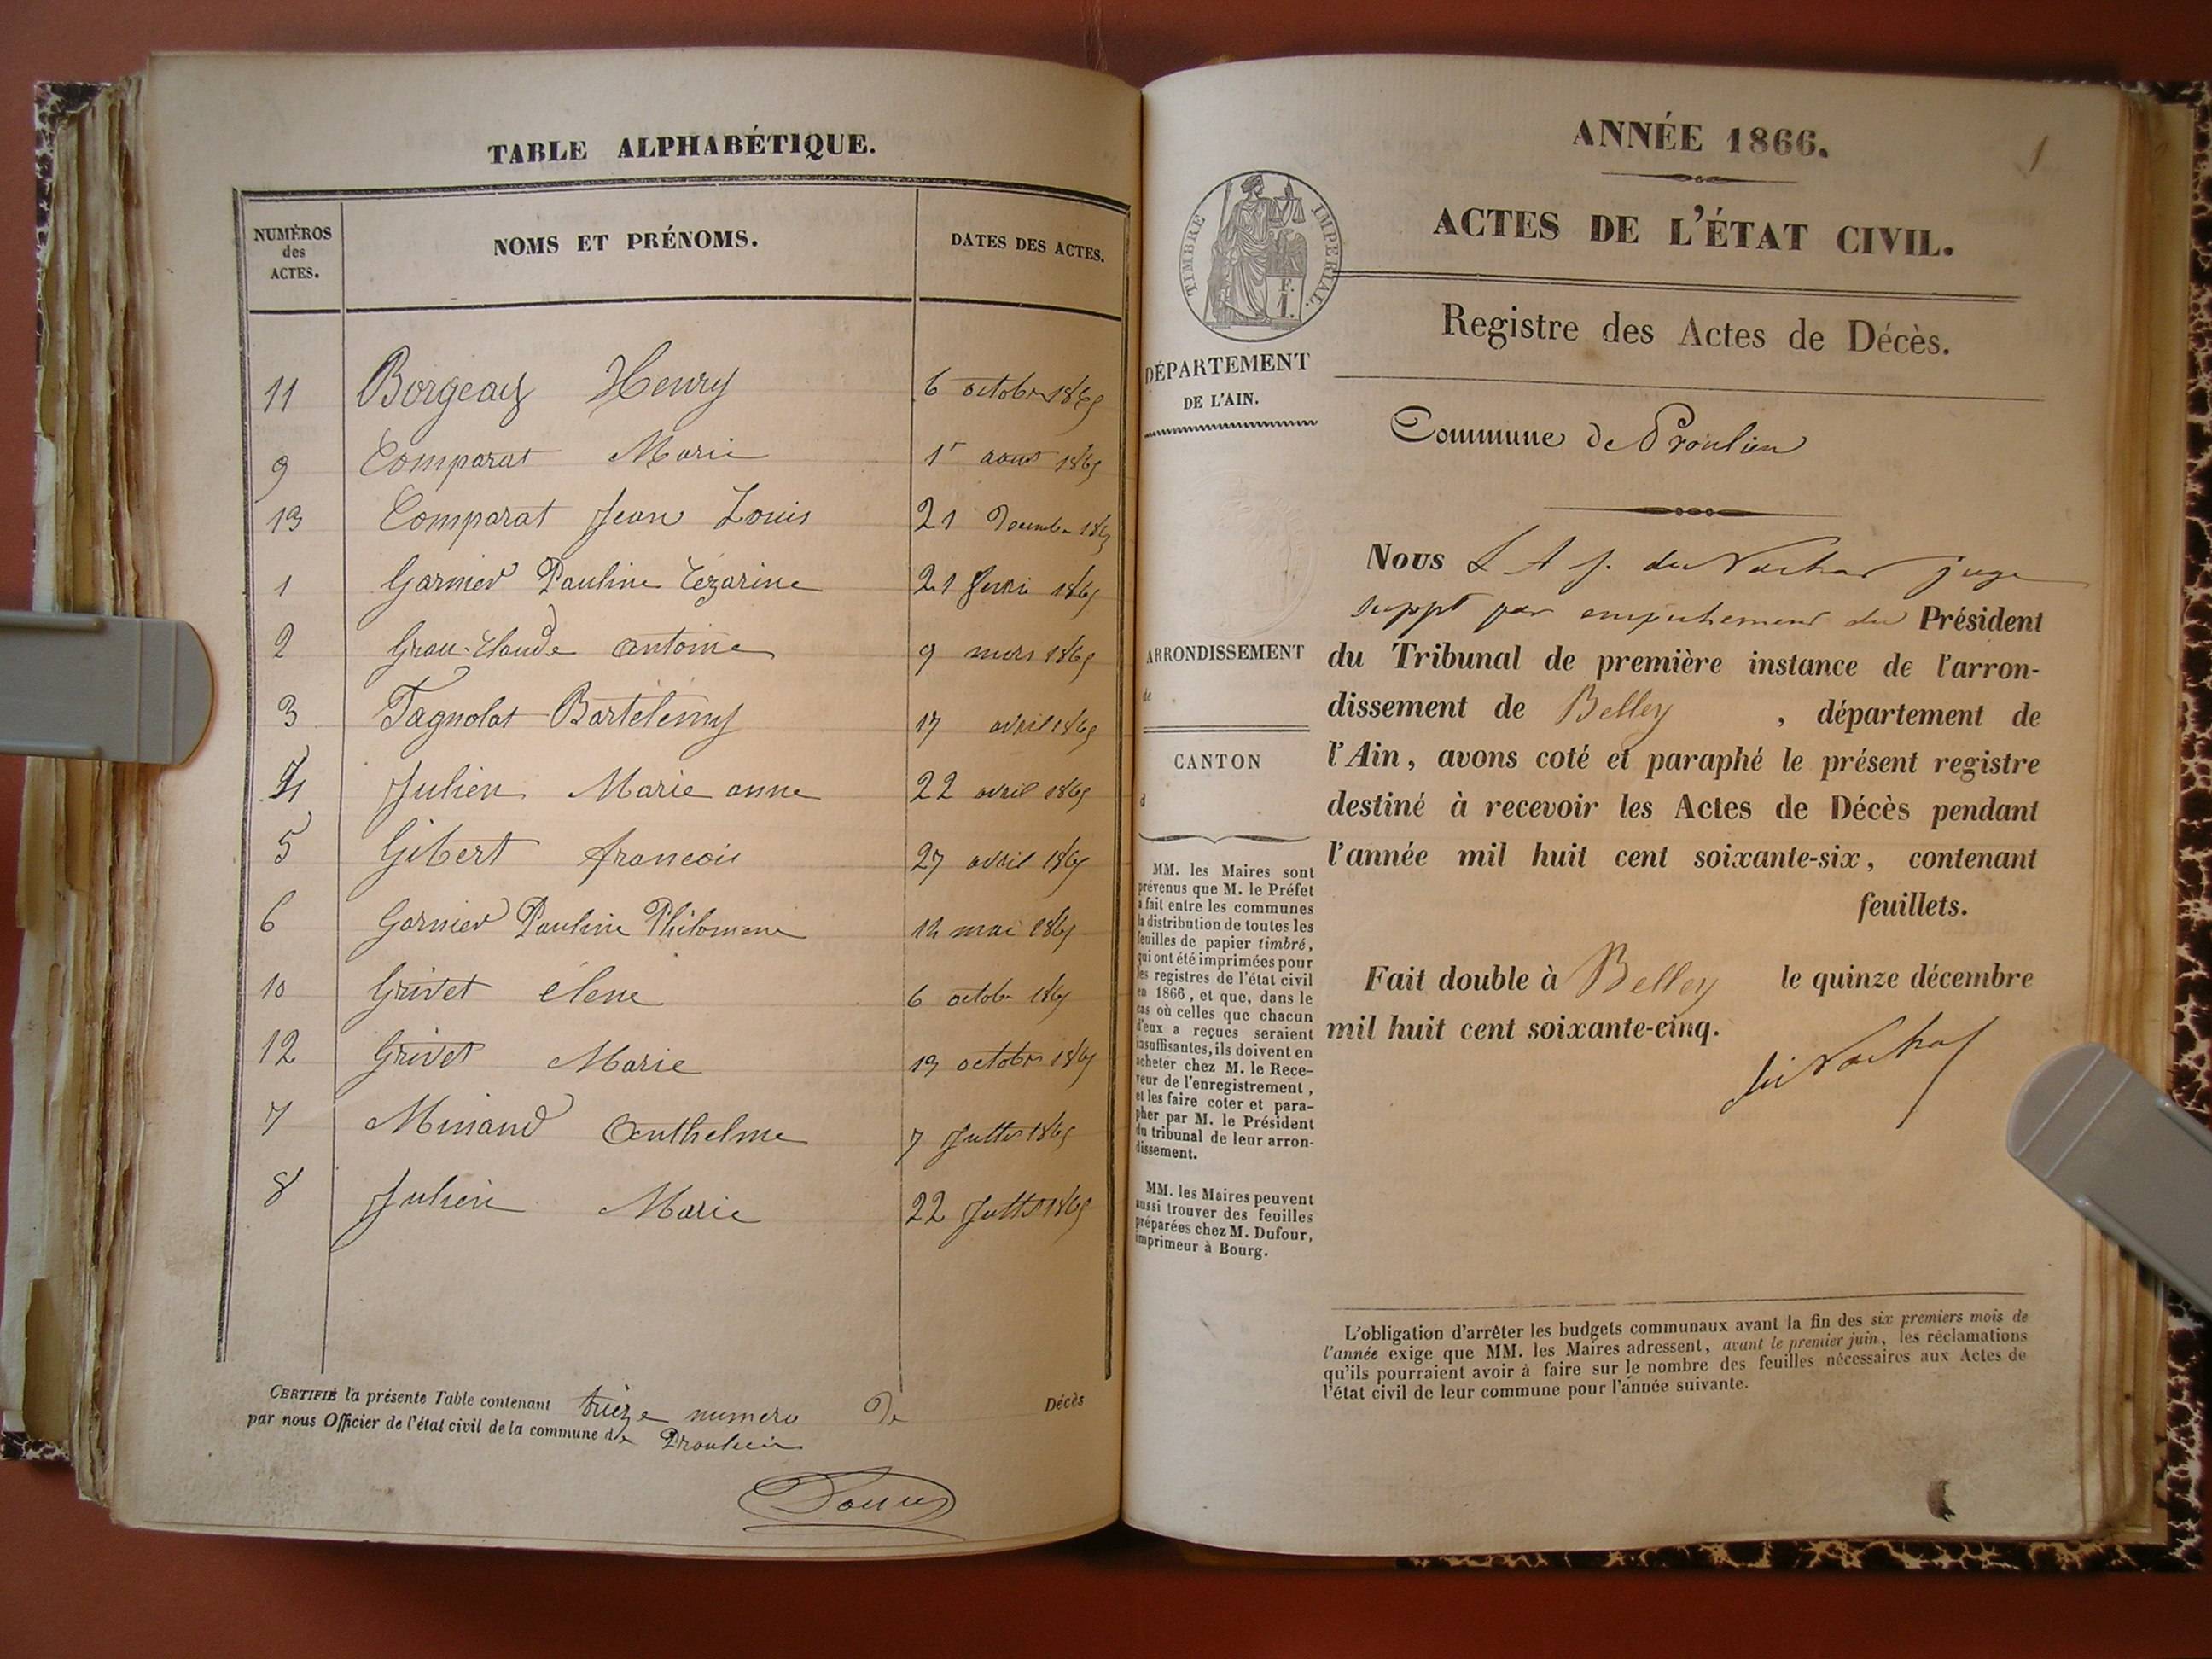 TABLE ALPHABÉTIQUE.
NUMÉROS des ACTES. NOMS ET PRÉNOMS. DATES DES ACTES.
11 Borgeay Henry 6 octobre 1865
9 Comparat Marie 1r aout 1865
13 Comparat Jean Louis 21 Decembre 1865
1 Garnier Pauline Cézarine 21 1865
2 Grau-Claude antoine 9 mars 1865
3 Tagnolat Bartélémy 17 avril 1865
4 Julien Marie anne 22 avril 1865
5 Gibert francois 27 avril 1865
6 Garnier Pauline Philomene 12 mai 1865
10 Grivet élene 6 octobre 1865
12 Grivet Marie 13 octobre 1865
7 Minand Anthelme 7 1865
8 Julien Marie 22 1865
CERTIFIÉ la présente Table contenant treize numero De Décès
par nous Officier de l'état civil de la commune de Proulieu
ANNÉE 1866.
1
ACTES DE L'ÉTAT CIVIL.
TIMBRE IMPÉRIAL.
F. 1.
Registre des Actes de Décès.
DÉPARTEMENT
DE L'AIN.
Commune de Proulieu
Nous L A J. du Nachat juge
suppt par empechement du Président
du Tribunal de première instance de l'arron-
dissement de Belley , département de
l'Ain, avons coté et paraphé le présent registre
destiné à recevoir les Actes de Décès pendant
l'année mil huit cent soixante-six, contenant
feuillets.
Fait double à Belley le quinze décembre
mil huit cent soixante-cinq.
du Nachat
ARRONDISSEMENT
de
CANTON
d
MM. les Maires sont
prévenus que M. le Préfet
a fait entre les communes
la distribution de toutes les
feuilles de papier timbré,
qui ont été imprimées pour
les registres de l'état civil
en 1866, et que, dans le
cas où celles que chacun
d'eux a reçues seraient
insuffisantes, ils doivent en
acheter chez M. le Rece-
veur de l'enregistrement,
et les faire coter et para-
pher par M. le Président
du tribunal de leur arron-
dissement.
MM. les Maires peuvent
aussi trouver des feuilles
préparées chez M. Dufour,
imprimeur à Bourg.
L'obligation d'arrêter les budgets communaux avant la fin des six premiers mois de
l'année exige que MM. les Maires adressent, avant le premier juin, les réclamations
qu'ils pourraient avoir à faire sur le nombre des feuilles nécessaires aux Actes de
l'état civil de leur commune pour l'année suivante.